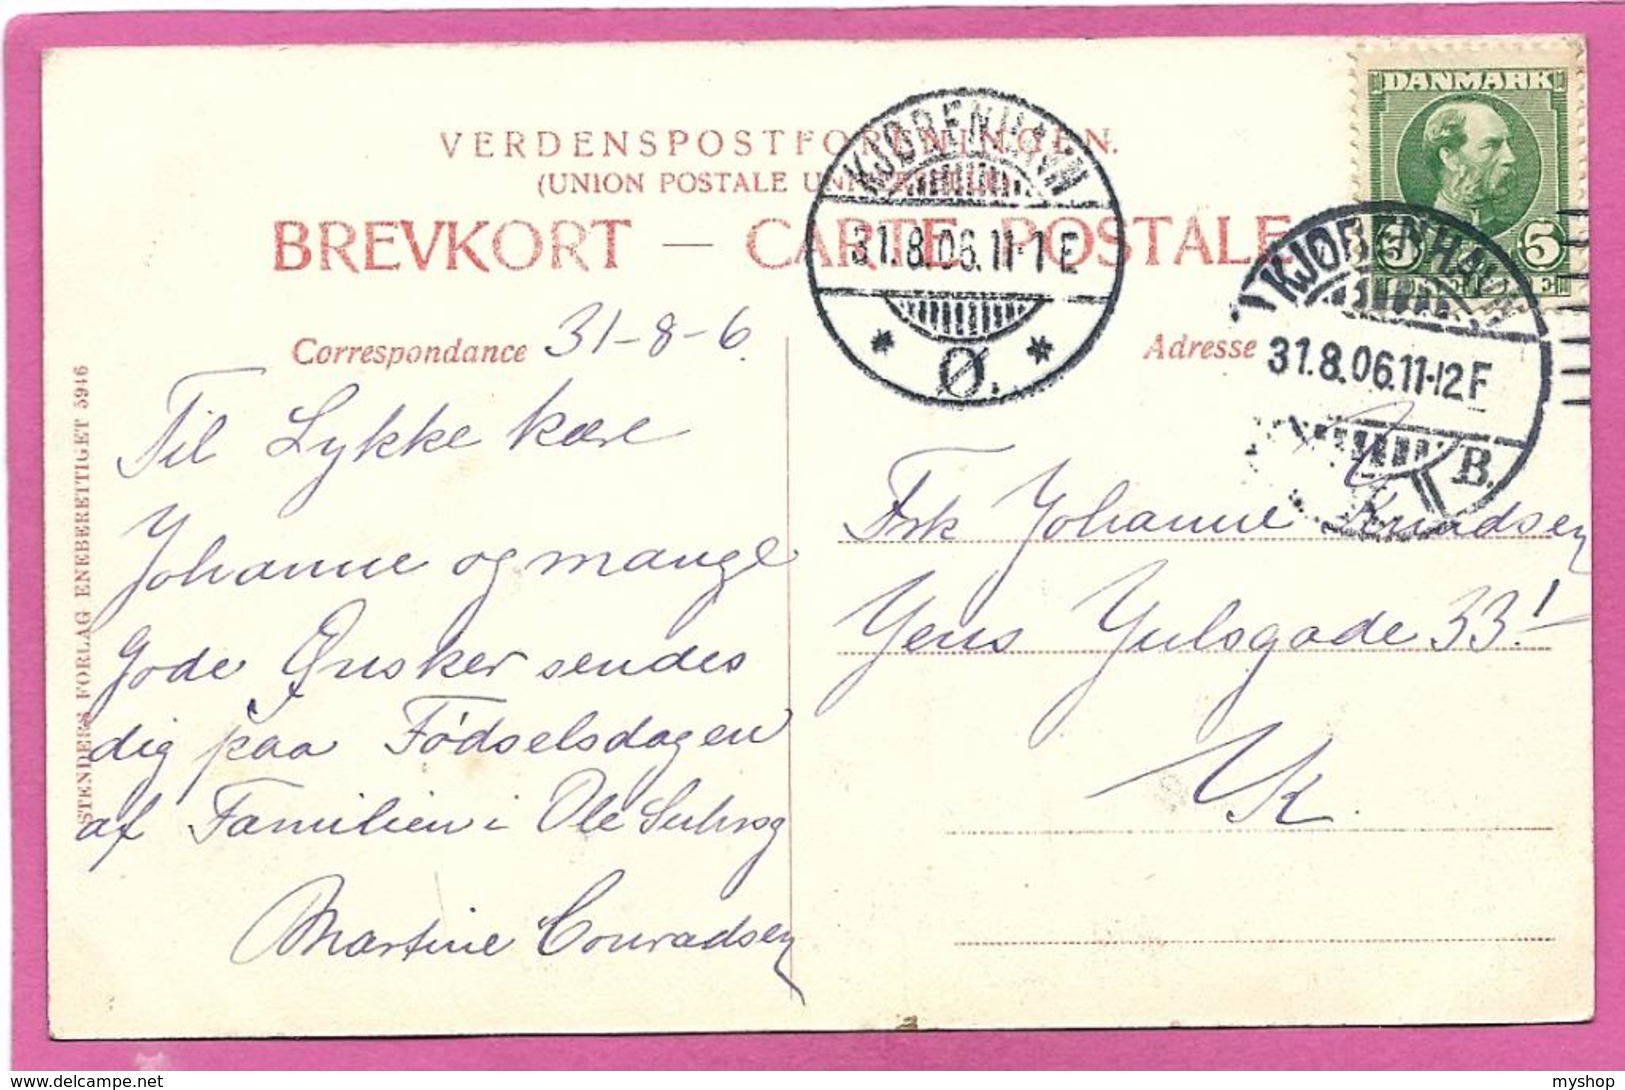 VERDENSPOSTFORENINGEN.
(UNION POSTALE UNIVERSELLE)
BREVKORT — CARTE POSTALE
DANMARK
5 5
KJØBENHAVN
31.8.06.11-1E
* Ø. *
KJØBENHAVN
31.8.06.11-12F
B.
Correspondance 31-8-6.
Til Lykke kære
Johanne og mange
gode Ønsker sendes
dig paa Födselsdagen
af Familien i Ole
Martine Conradsen
Adresse
Frk Johanne Knudsen
Jens Juulsgade 33!
K.
STENDERS FORLAG ENEBERETTIGET 5946
myshop